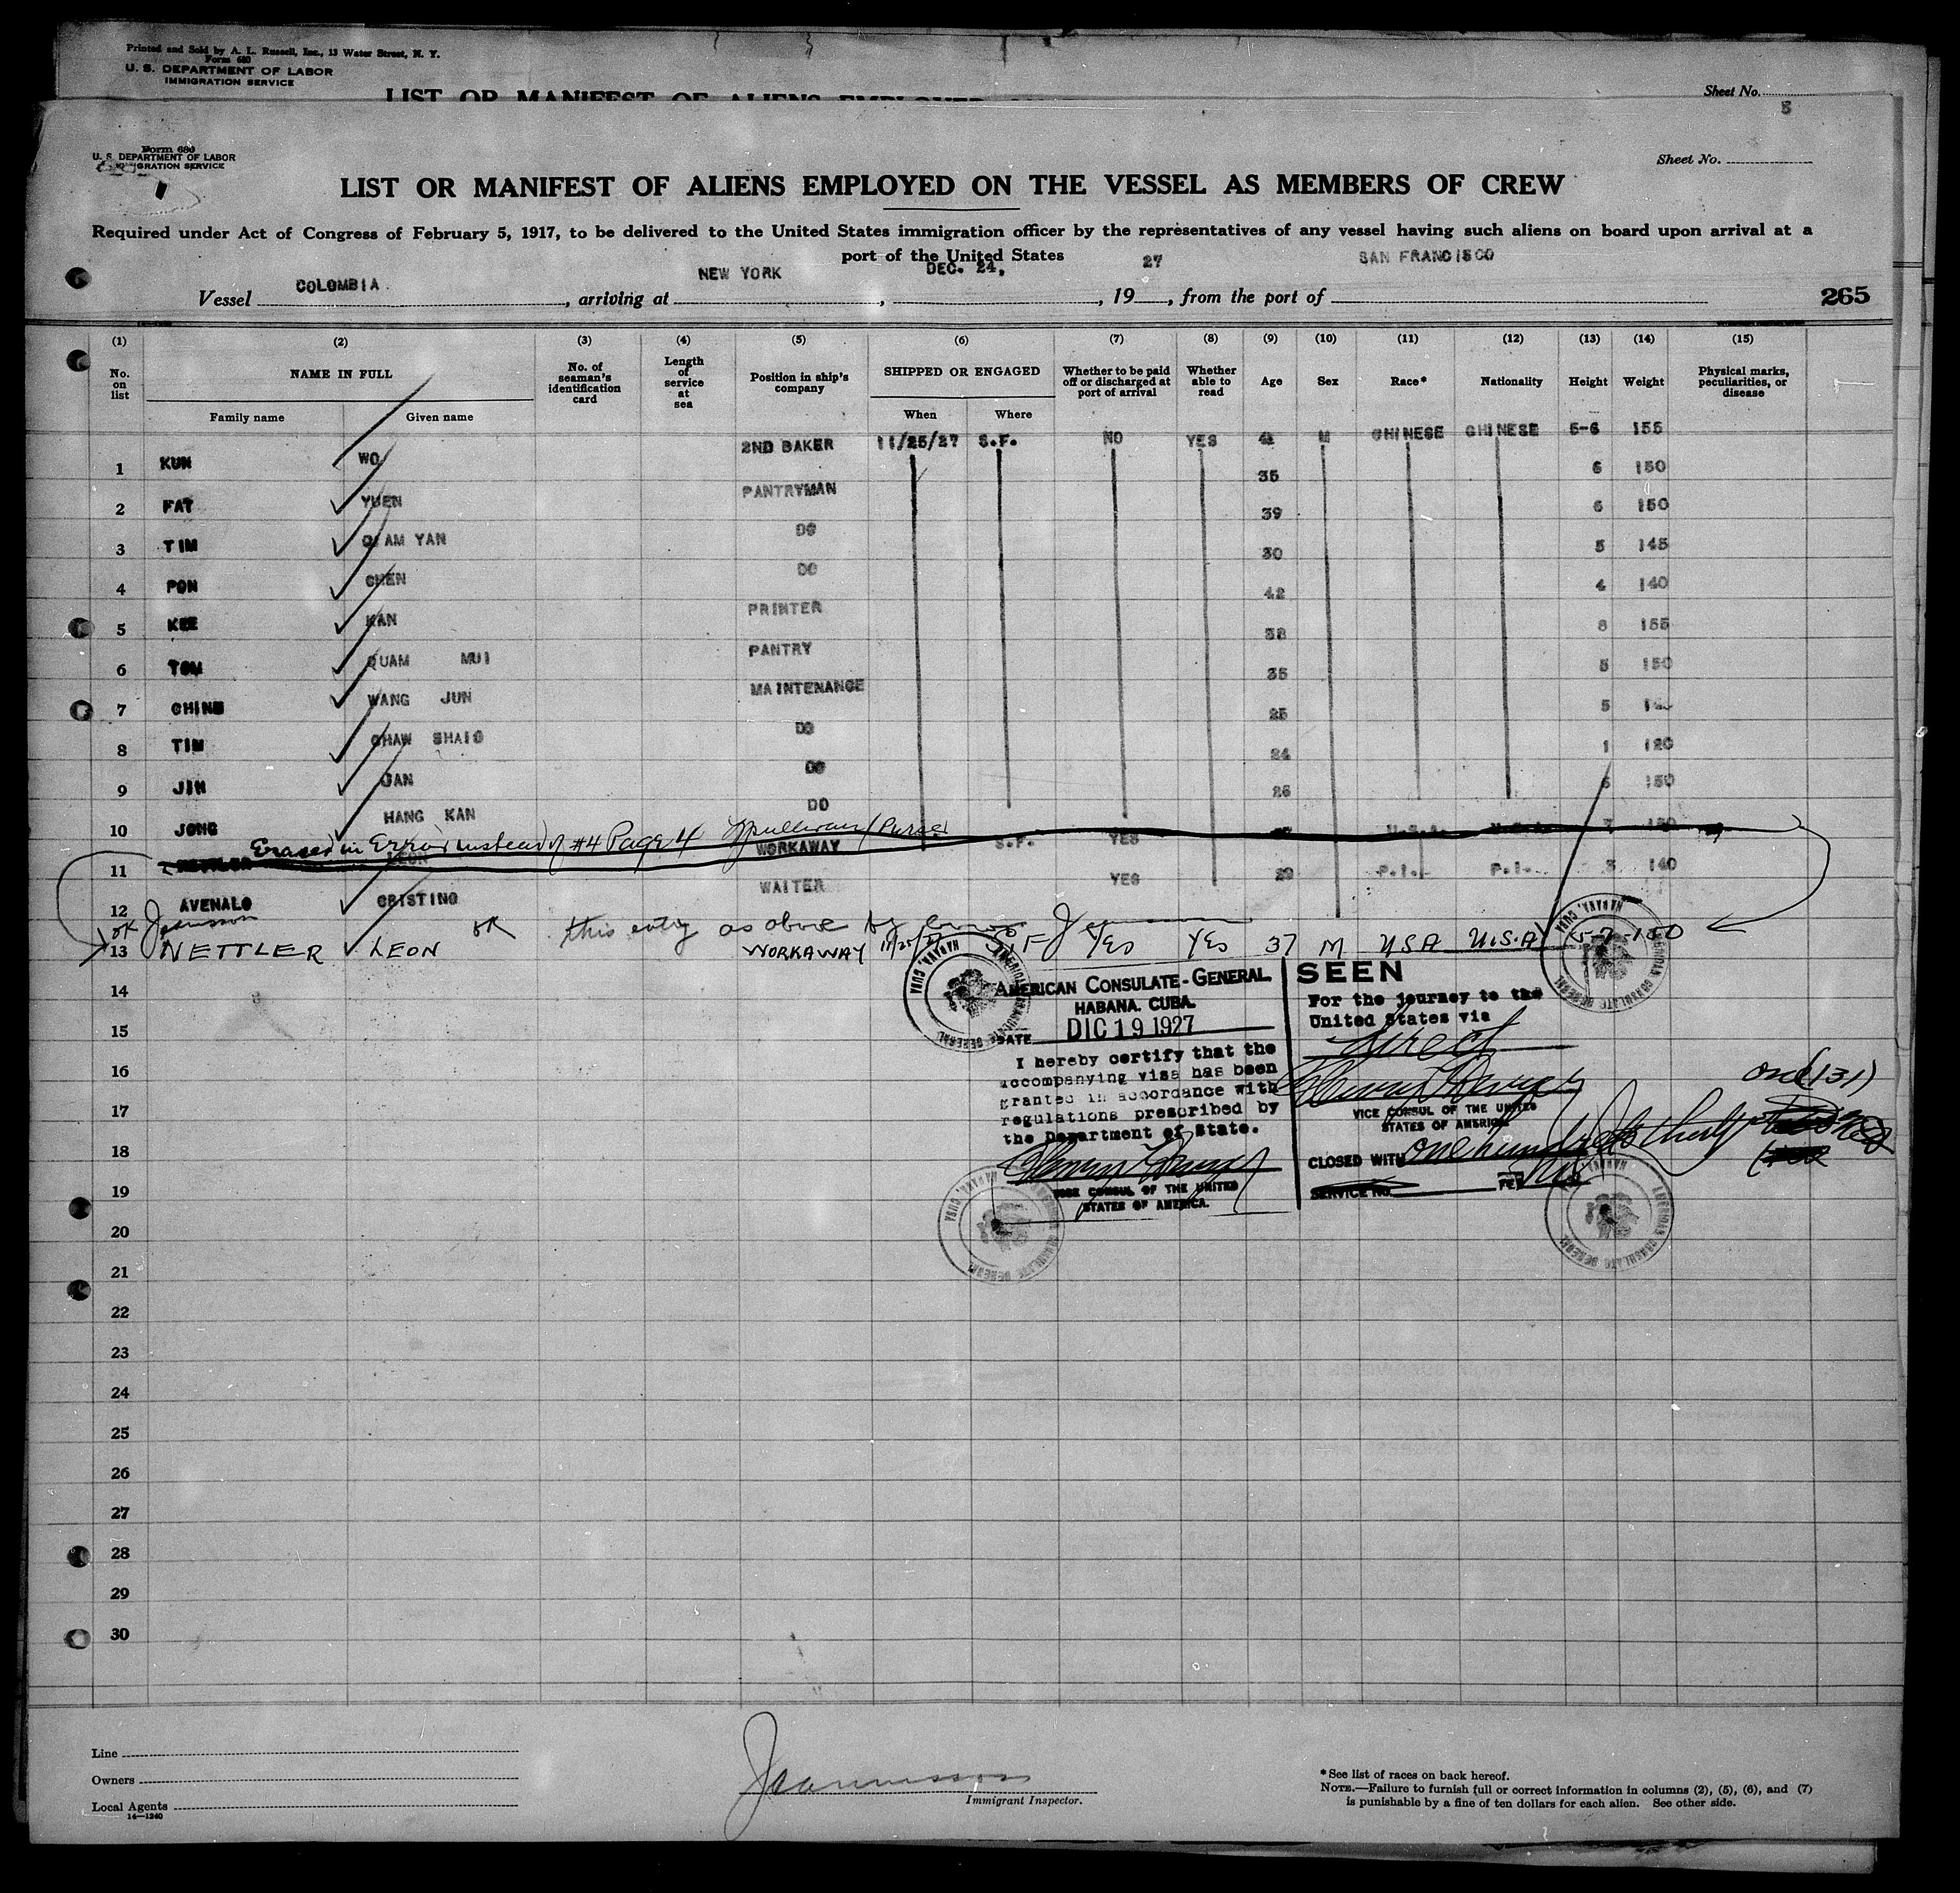 Printed and Sold by A. L. Russell, Inc., 13 Water Street, N. Y.
Form 680
U. S. DEPARTMENT OF LABOR
IMMIGRATION SERVICE
LIST OR MANIFEST OF ALIENS EMPLOYED
Sheet No.
5
Form 680
U. S. DEPARTMENT OF LABOR
IMMIGRATION SERVICE
Sheet No.
LIST OR MANIFEST OF ALIENS EMPLOYED ON THE VESSEL AS MEMBERS OF CREW
Required under Act of Congress of February 5, 1917, to be delivered to the United States immigration officer by the representatives of any vessel having such aliens on board upon arrival at a
port of the United States
Vessel COLOMBIA, arriving at NEW YORK, DEC. 24, 1927, from the port of SAN FRANCISCO
265
(1) (2) (3) (4) (5) (6) (7) (8) (9) (10) (11) (12) (13) (14) (15)
No. on list NAME IN FULL No. of seaman's identification card Length of service at sea Position in ship's company SHIPPED OR ENGAGED Whether to be paid off or discharged at port of arrival Whether able to read Age Sex Race* Nationality Height Weight Physical marks, peculiarities, or disease
Family name Given name When Where
1 KUN WO 2ND BAKER 11/25/27 S.F. NO YES M CHINESE CHINESE 5-6 155
2 FAT YUEN PANTRYMAN 35 6 150
3 TIM QUAM YAN DO 39 6 150
4 PON CHEN DO 30 5 145
5 KEE KAN PRINTER 42 4 140
6 TOM QUAM MUI PANTRY 38 8 155
7 CHING WANG JUN MAINTENANCE 35 5 150
8 TIM CHAW SHAIG DO 25 5
9 JIN JAN DO 24 1 120
10 JONG HANG KAN DO 26 6 150
Erased in Error instead of #4 Page 4 Purser
11 NETTLER LEON WORKAWAY S.F. YES U.S.A. U.S.A. 7 150
12 AVENALO CRISTINO WAITER YES 29 P.I. P.I. 3 140
OK Joannsson OK this entry as above by
13 NETTLER LEON WORKAWAY 11/25/27 S.F YES YES 37 M USA U.S.A 5-7 150
14
15
16
17
18
19
20
21
22
23
24
25
26
27
28
29
30
AMERICAN CONSULATE-GENERAL
HABANA, CUBA.
DATE DIC 19 1927
I hereby certify that the
accompanying visa has been
granted in accordance with
regulations prescribed by
the Department of State.
VICE CONSUL OF THE UNITED
STATES OF AMERICA.
SEEN
For the journey to the
United States via
direct
VICE CONSUL OF THE UNITED
STATES OF AMERICA
CLOSED WITH one hundred thirty
one (131)
SERVICE NO. FEE
AMERICAN CONSULATE GENERAL HABANA, CUBA
AMERICAN CONSULATE GENERAL HABANA, CUBA
AMERICAN CONSULATE GENERAL HABANA, CUBA
AMERICAN CONSULATE GENERAL HABANA, CUBA
Line
Owners
Local Agents
14—1240
Immigrant Inspector.
*See list of races on back hereof.
NOTE.—Failure to furnish full or correct information in columns (2), (5), (6), and (7)
is punishable by a fine of ten dollars for each alien. See other side.